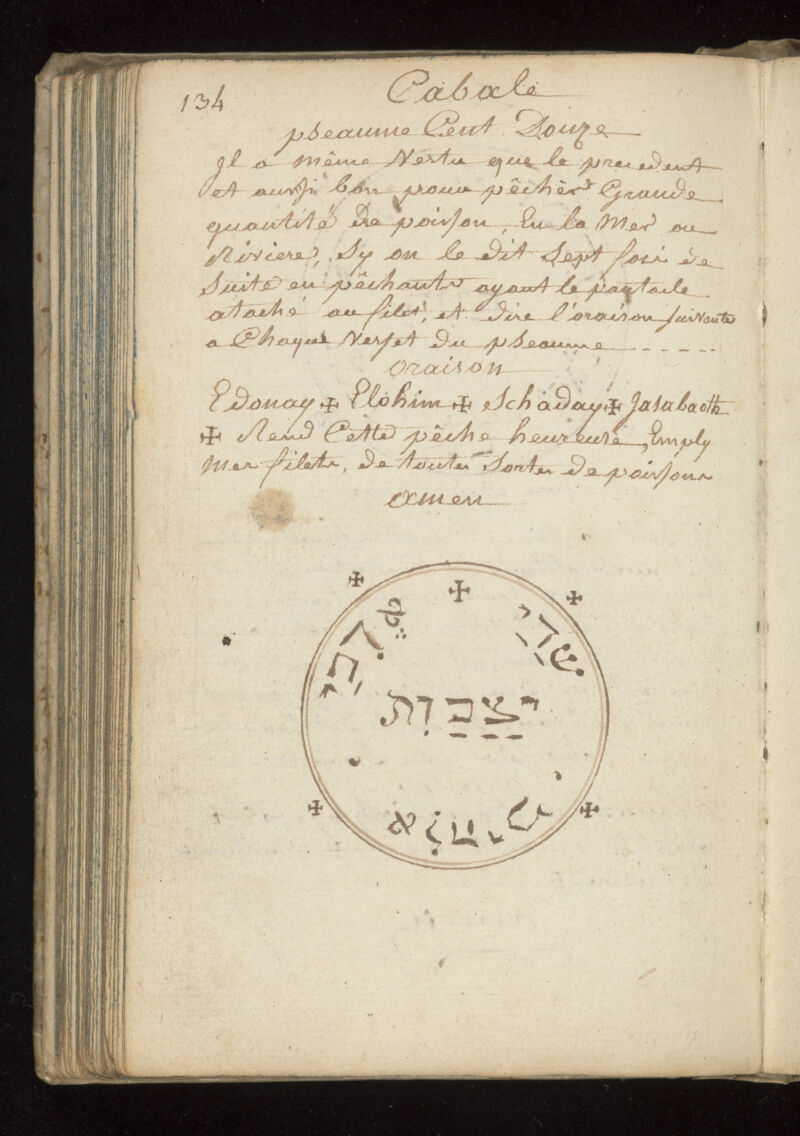 134
Cabale
pseaume Cent Douze
Jl a même Vertu que le precedent
et aussi bon pour pêchèr Grande
quantité de poisson, En la Mer ou
Riviere, Sy on le dit Sept fois de
Suite en pêchants ayant le pantacle
ataché au filet, et dire l'oraison suivante
a Chaque Verset du pseaume
oraison
Edonay ✠ Elohim ✠ Schaday ✠ Jasabaoth
✠ Rend Cette pêche heureuse, Emply
Mes filets, de toutes Sortes de poissons
amen
שַׁדַּי
יצבות